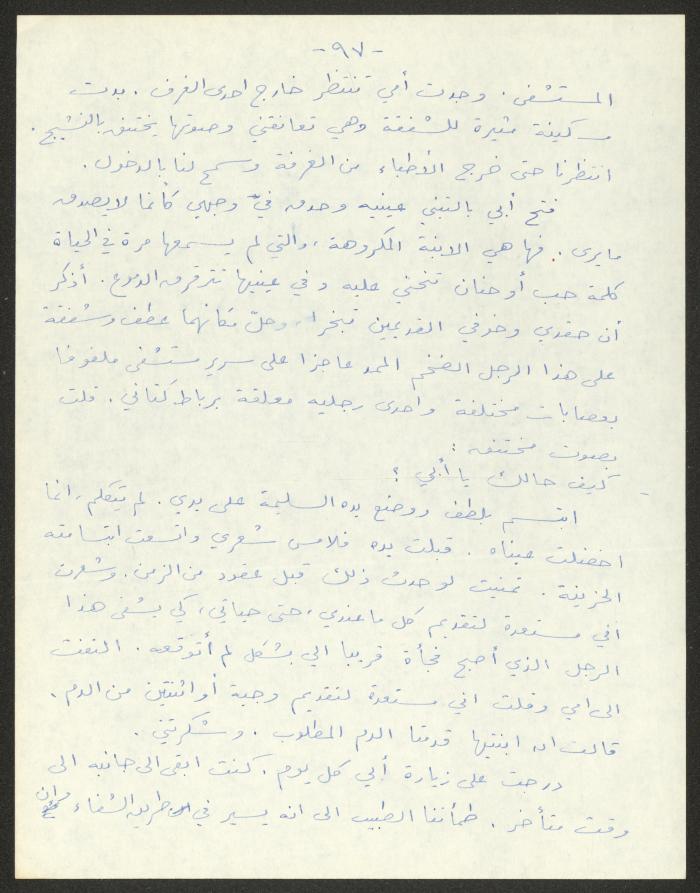 -٩٧-
المستشفى. وجدت أمي تنتظر خارج احدى الغرف. بدت
مسكينة مثيرة للشفقة وهي تعانقني وصوتها يختنق بالنشيج.
انتظرنا حتى خرج الأطباء من الغرفة وسمح لنا بالدخول.
فتح أبي بالتبني عينيه وحدق فيّ وجهي كأنما لا يصدق
ما يرى. فها هي الابنة المكروهة، والتي لم يسمعها مرة في الحياة
كلمة حب أو حنان تنحني عليه وفي عينيها تترقرق الدموع. أذكر
أن حقدي وخوفي القديمين تبخرا، وحلّ مكانهما عطف وشفقة
على هذا الرجل الضخم الممدد عاجزا على سرير مستشفى ملفوفا
بعصابات مختلفة واحدى رجليه معلقة برباط كتاني. قلت
بصوت مختنق:
كيف حالك يا أبي؟
ابتسم بلطف ووضع يده السليمة على يدي. لم يتكلم، انما
اخضلت عيناه. قبلت يده فلامس شعري واتسعت ابتسامته
الحزينة. تمنيت لو حدث ذلك قبل عقود من الزمن. وشعرت
اني مستعدة لتقديم كل ما عندي، حتى حياتي، كي يشفى هذا
الرجل الذي أصبح فجأة قريبا الي بشكل لم أتوقعه. التفتت
الى امي وقلت اني مستعدة لتقديم وجبة أو اثنتين من الدم.
قالت ان ابنتيها قدمتا الدم المطلوب. وشكرتني.
درجت على زيارة أبي كل يوم. كنت ابقى الى جانبه الى
وقت متأخر. طمأننا الطبيب الى انه يسير في طريق الشفاء وان